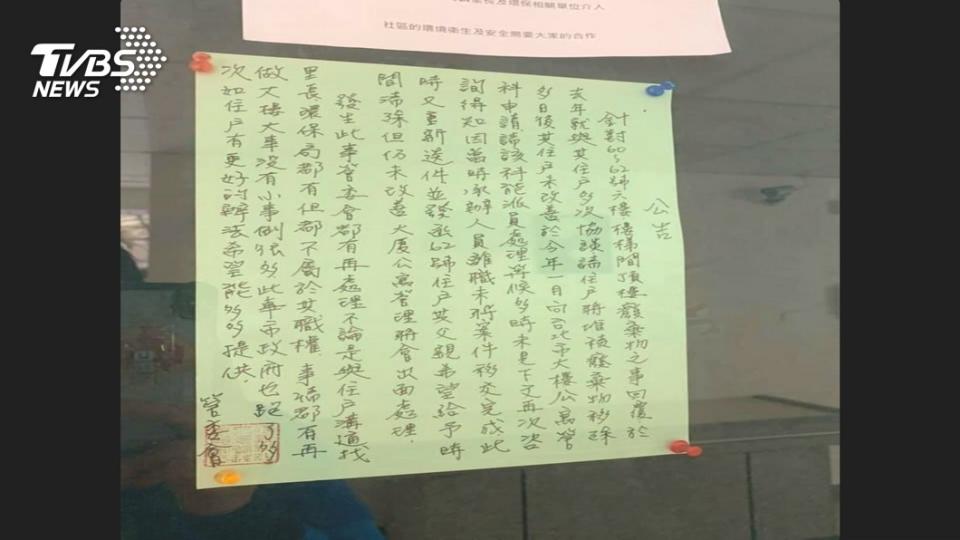 TVBS
NEWS
環保相關單位介入
社區的環境衛生及安全需要大家的合作
公告
針對60、62號六樓樓梯間頂樓癈棄物之事回覆於
去年就與其住戶多次協談請住戶將堆積癈棄物移除
多日後其住戶未改善於今年一月向台北市大樓公寓管
科申請請該科能派員處理等候多時未見下文再次咨
詢得知因當時承辦人員離職未將案件移交完成此
時又重新送件並發函62號住戶其父親希望給予時
間清除但仍未改善大廈公寓管理將會出面處理.
發生此事管委會都有再處理不論是與住戶溝通找
里長環保局都有但都不屬於其職權 事褊都有再
做大樓大事沒有小事例很多此事市政府也跑了多
次如住戶有更好的辦法希望能多多提供.
管委會